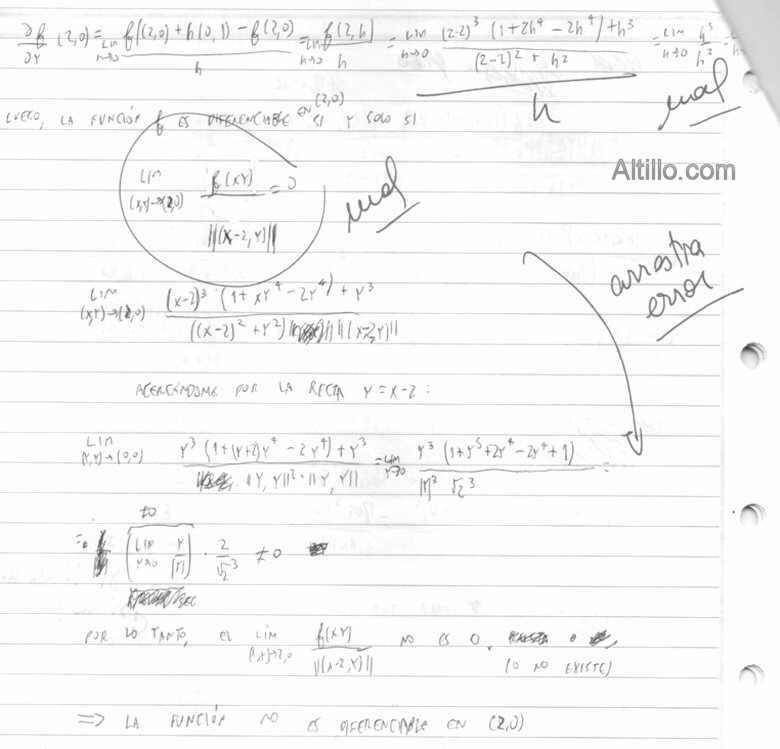 ∂f/∂Y (2,0) = Lim h→0 f((2,0) + h(0,1)) - f(2,0) / h = Lim h→0 f(2,h) / h = Lim h→0 (2-2)³ (1+2h⁴ - 2h⁴) + h³ / (2-2)² + h² / h = Lim h→0 h³ / h²
mal
LUEGO, LA FUNCIÓN f ES DIFERENCIABLE EN (2,0) SI Y SOLO SI
Altillo.com
Lim (X,Y)→(2,0) f(XY) / ||(X-2,Y)|| = 0
mal
arrastra
error
Lim (X,Y)→(2,0) (X-2)³ · (1 + XY⁴ - 2Y⁴) + Y³ / ((X-2)² + Y²) ||(X-2,Y)||
ACERCÁNDOME POR LA RECTA Y = X-2 :
Lim (Y,Y)→(0,0) Y³ (1+(Y+2)Y⁴ - 2Y⁴) + Y³ / ||Y,Y||² · ||Y,Y|| = Lim Y→0 Y³ (1+Y⁵+2Y⁴-2Y⁴+1) / |Y|³ √2³ =
≠0
= [Lim Y→0 Y / |Y|] · 2 / √2³ ≠ 0
POR LO TANTO, EL Lim f(XY) / ||(X-2,Y)|| NO ES 0,
(O NO EXISTE)
=> LA FUNCIÓN NO ES DIFERENCIABLE EN (2,0)